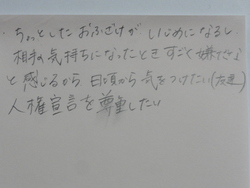 ちょっとしたおふざけが いじめになるし
相手の気持ちになったとき すごく嫌だな
と感じるから 日頃から気をつけたい(友達)
人権宣言を尊重したい